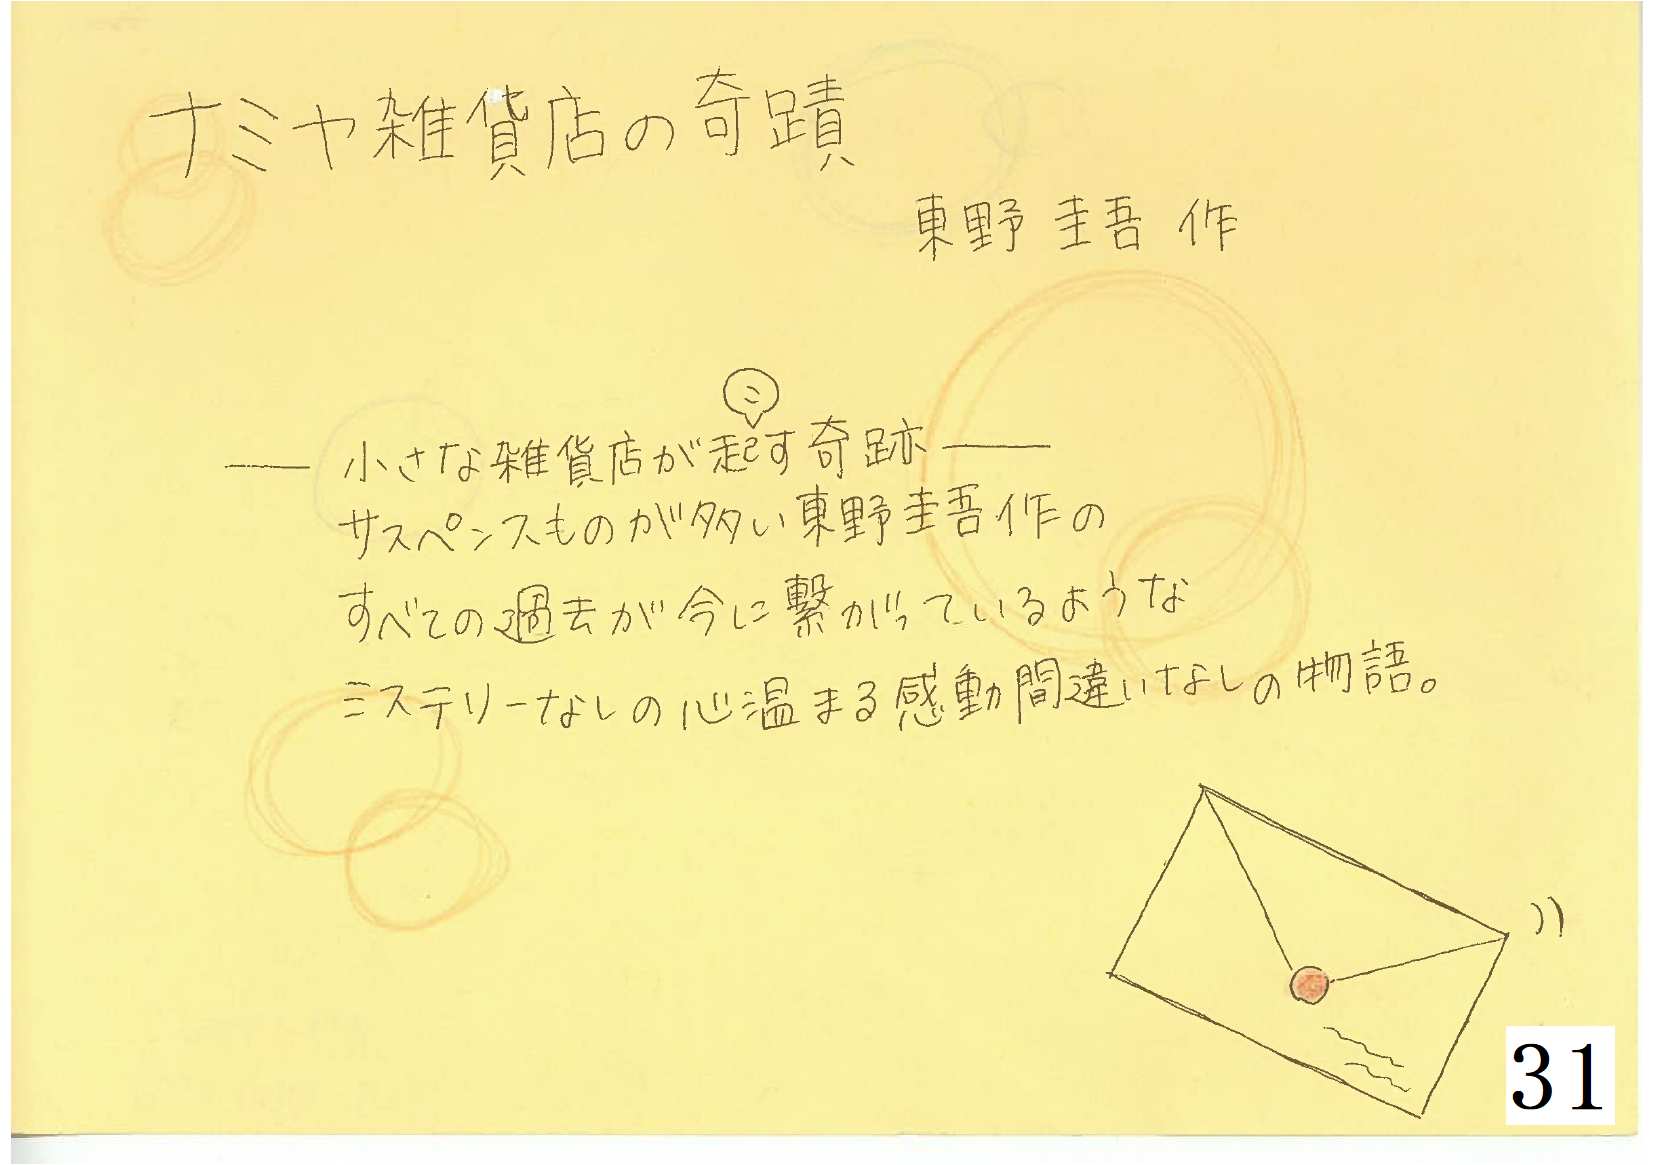 ナミヤ雑貨店の奇蹟
東野 圭吾 作
こ
小さな雑貨店が起す奇跡
サスペンスものが多い東野圭吾作の
すべての過去が今に繋がっているような
ミステリーなしの心温まる感動間違いなしの物語。
31